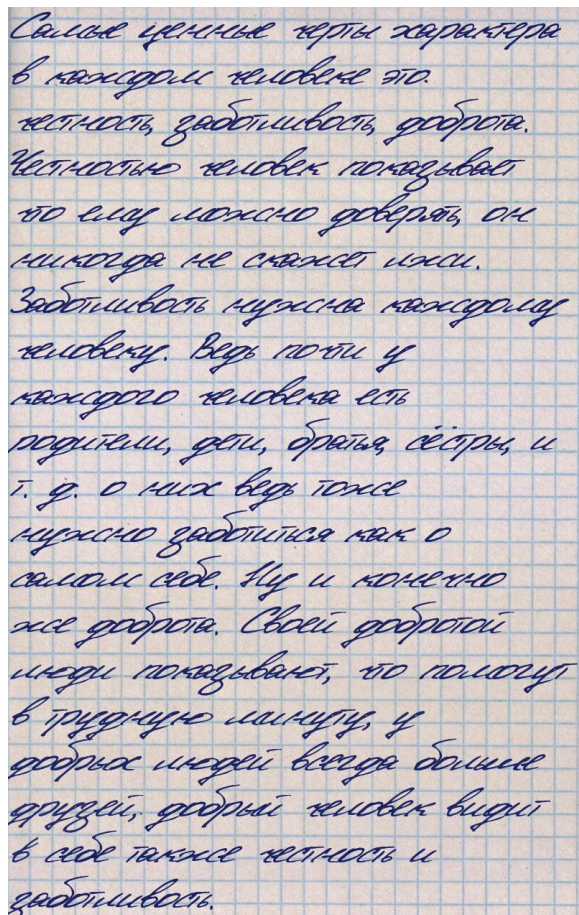 Самые ценные черты характера
в каждом человеке это
честность, заботливость, доброта.
Честностью человек показывает
что ему можно доверять, он
никогда не скажет лжи.
Заботливость нужна каждому
человеку. Ведь почти у
каждого человека есть
родители, дети, братья, сёстры, и
т. д. о них ведь тоже
нужно заботиться как о
самом себе. Ну и конечно
же доброта. Своей добротой
люди показывают, что помогут
в трудную минуту, у
добрых людей всегда больше
друзей, добрый человек видит
в себе также честность и
заботливость.